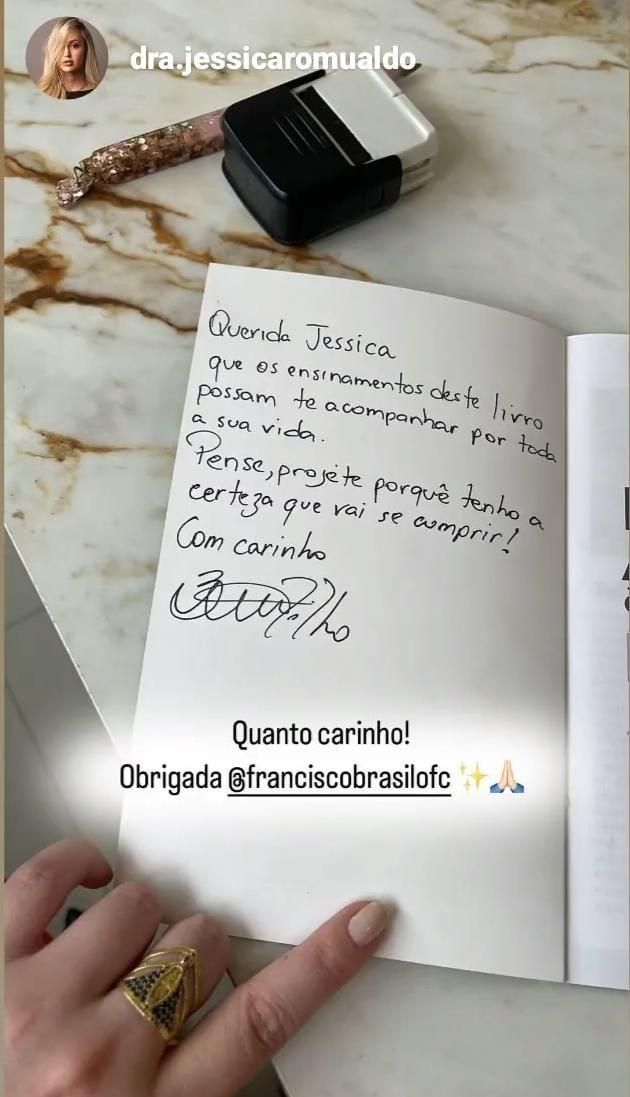 dra.jessicaromualdo
Querida Jessica
que os ensinamentos deste livro
possam te acompanhar por toda
a sua vida.
Pense, projete porquê tenho a
certeza que vai se cumprir!
Com carinho
Quanto carinho!
Obrigada @franciscobrasilofc ✨🙏🏻